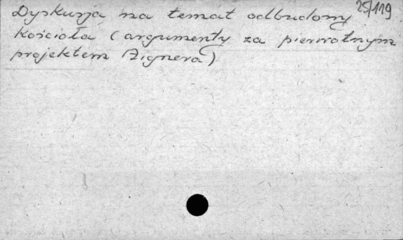 25/119
Dyskusja na temat odbudowy
Kościoła (argumenty za pierwotnym
projektem Zignera)